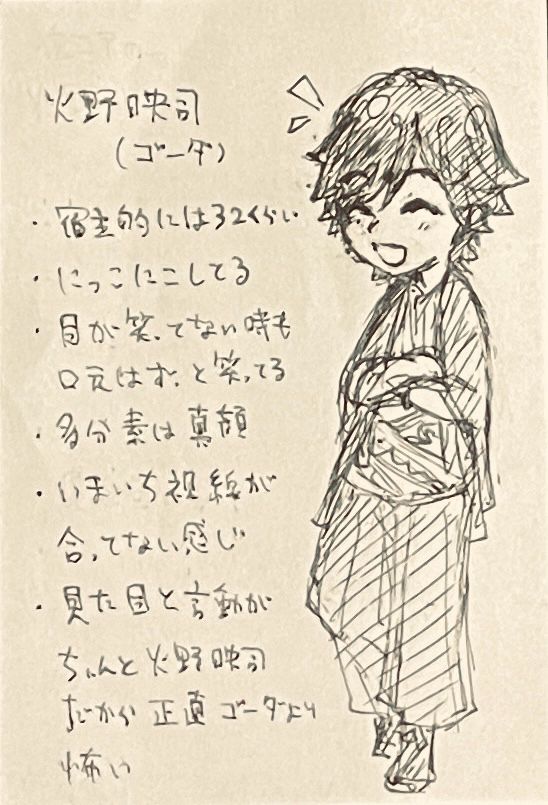 火野映司
(ゴーダ)
・宿主的には32くらい
・にっこにこしてる
・目が笑ってない時も
口元はずっと笑ってる
・多分素は真顔
・いまいち視線が
合ってない感じ
・見た目と言動が
ちゃんと火野映司
だから正直ゴーダより
怖い